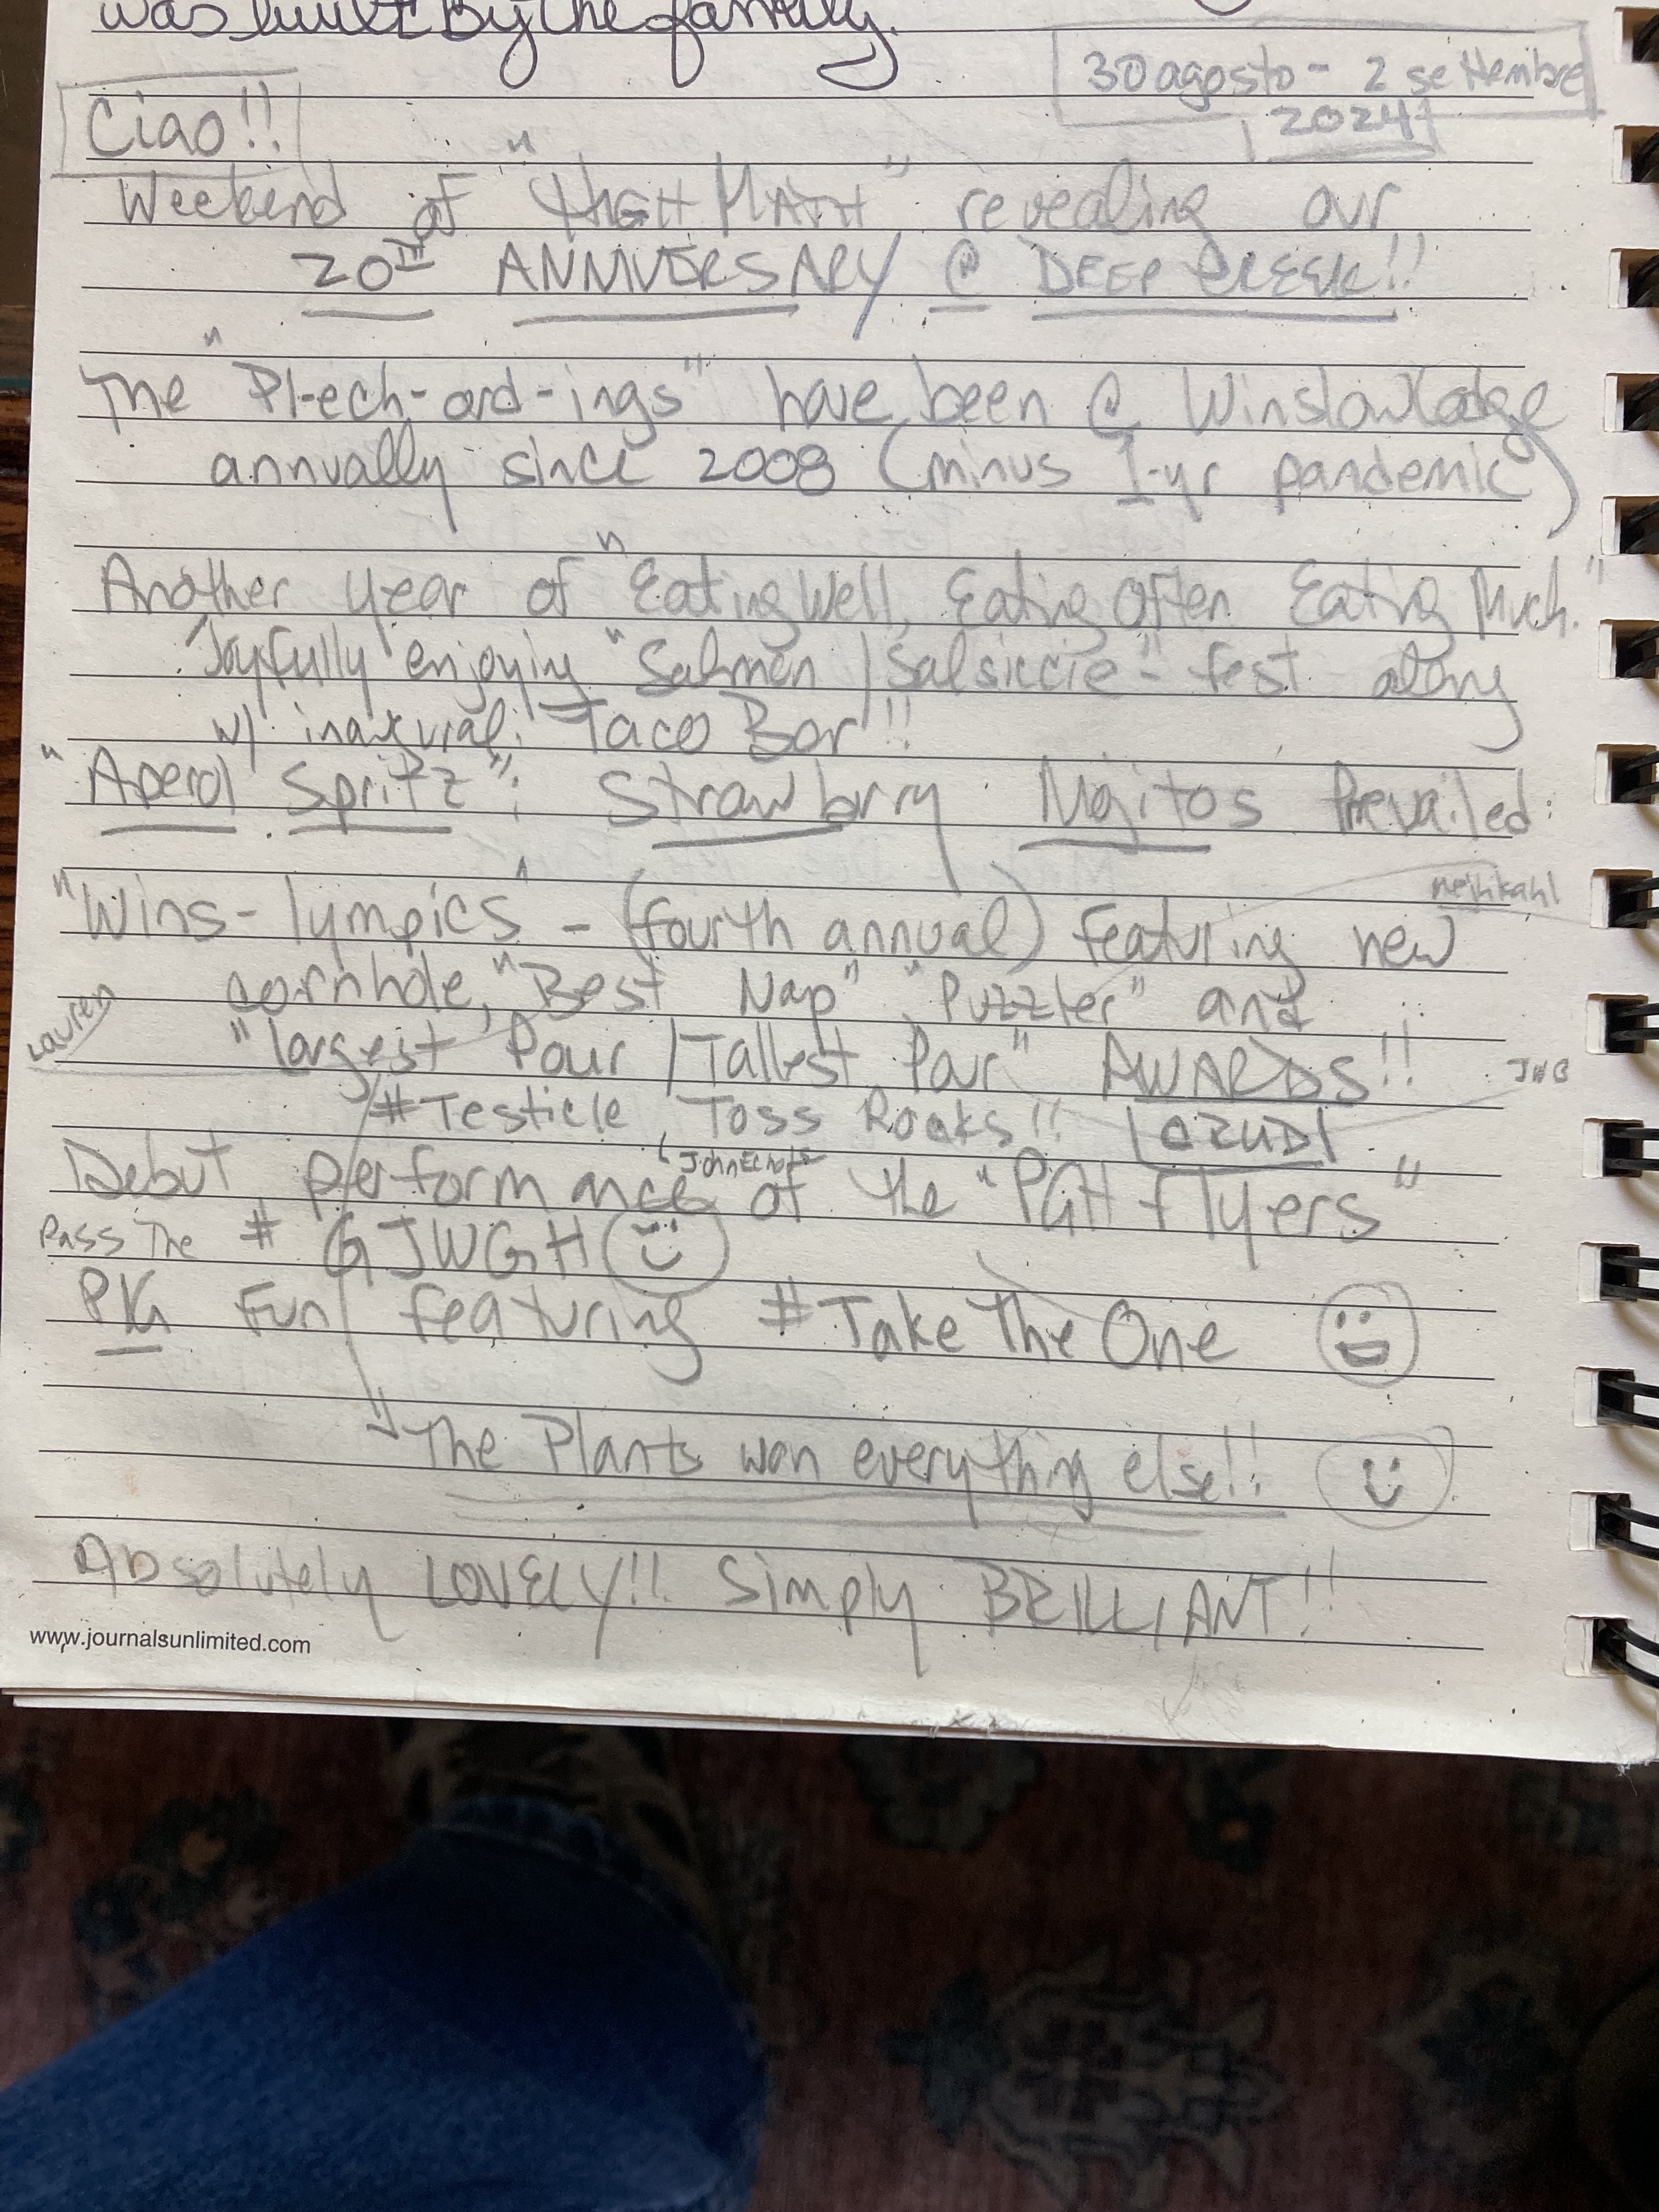 was built by the family.
30 agosto - 2 settembre
2024
Ciao!!
Weekend of "HIGH MATH" revealing our
20TH ANNIVERSARY @ DEEP CREEK!!
The "Pl-ech-ord-ings" have been @ Winslow Lodge
annually since 2008 (minus 1-yr pandemic)
Another year of "Eating Well, Eating Often Eating Much."
Joyfully enjoying "Salmon / Salsiccie" - fest along
w/ inaugural: Taco Bar!!
"Aperol Spritz"; Strawbrry Mojitos Prevailed:
"Wins-lympics" - (fourth annual) featuring new
cornhole, "Best Nap" "Puzzler" and
Lauren
"largest Pour / Tallest Pour" AWARDS!!
JWG
#Testicle Toss Rocks!!
Debut performance of the "PGH Flyers"
Pass The # GJWGH
PG Fun featuring #Take The One
The Plants won everything else!!
Absolutely LOVELY!! Simply BRILLIANT!!
www.journalsunlimited.com